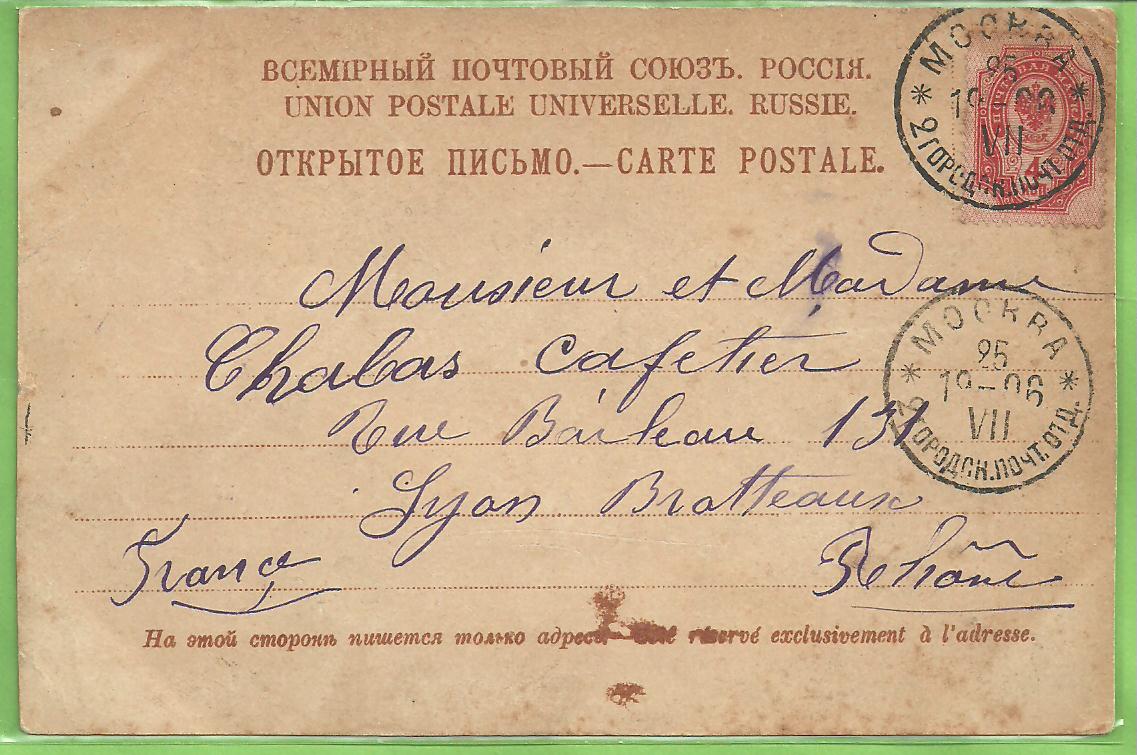 ВСЕМІРНЫЙ ПОЧТОВЫЙ СОЮЗЪ. РОССІЯ.
UNION POSTALE UNIVERSELLE. RUSSIE.
ОТКРЫТОЕ ПИСЬМО.—CARTE POSTALE.
МОСКВА
25
19-06
VII
ГОРОДСК.ПОЧТ.ОТД.
4
Monsieur et Madame
Chabas Cafetier
Rue Boileau 131
Lyon Brotteaux
France
Rhône
МОСКВА
25
19-06
VII
ГОРОДСК.ПОЧТ.ОТД.
На этой сторонѣ пишется только адресъ.—Coté réservé exclusivement à l'adresse.